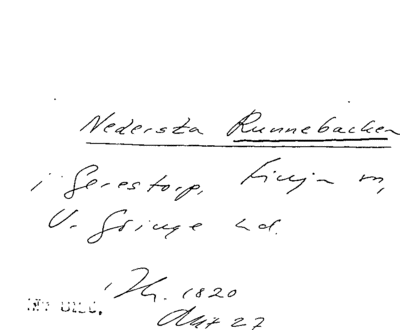 Nedersta Runnebacken
i Gerestorp, Finja sn,
V. Göinge hd.
1820
Akt 27